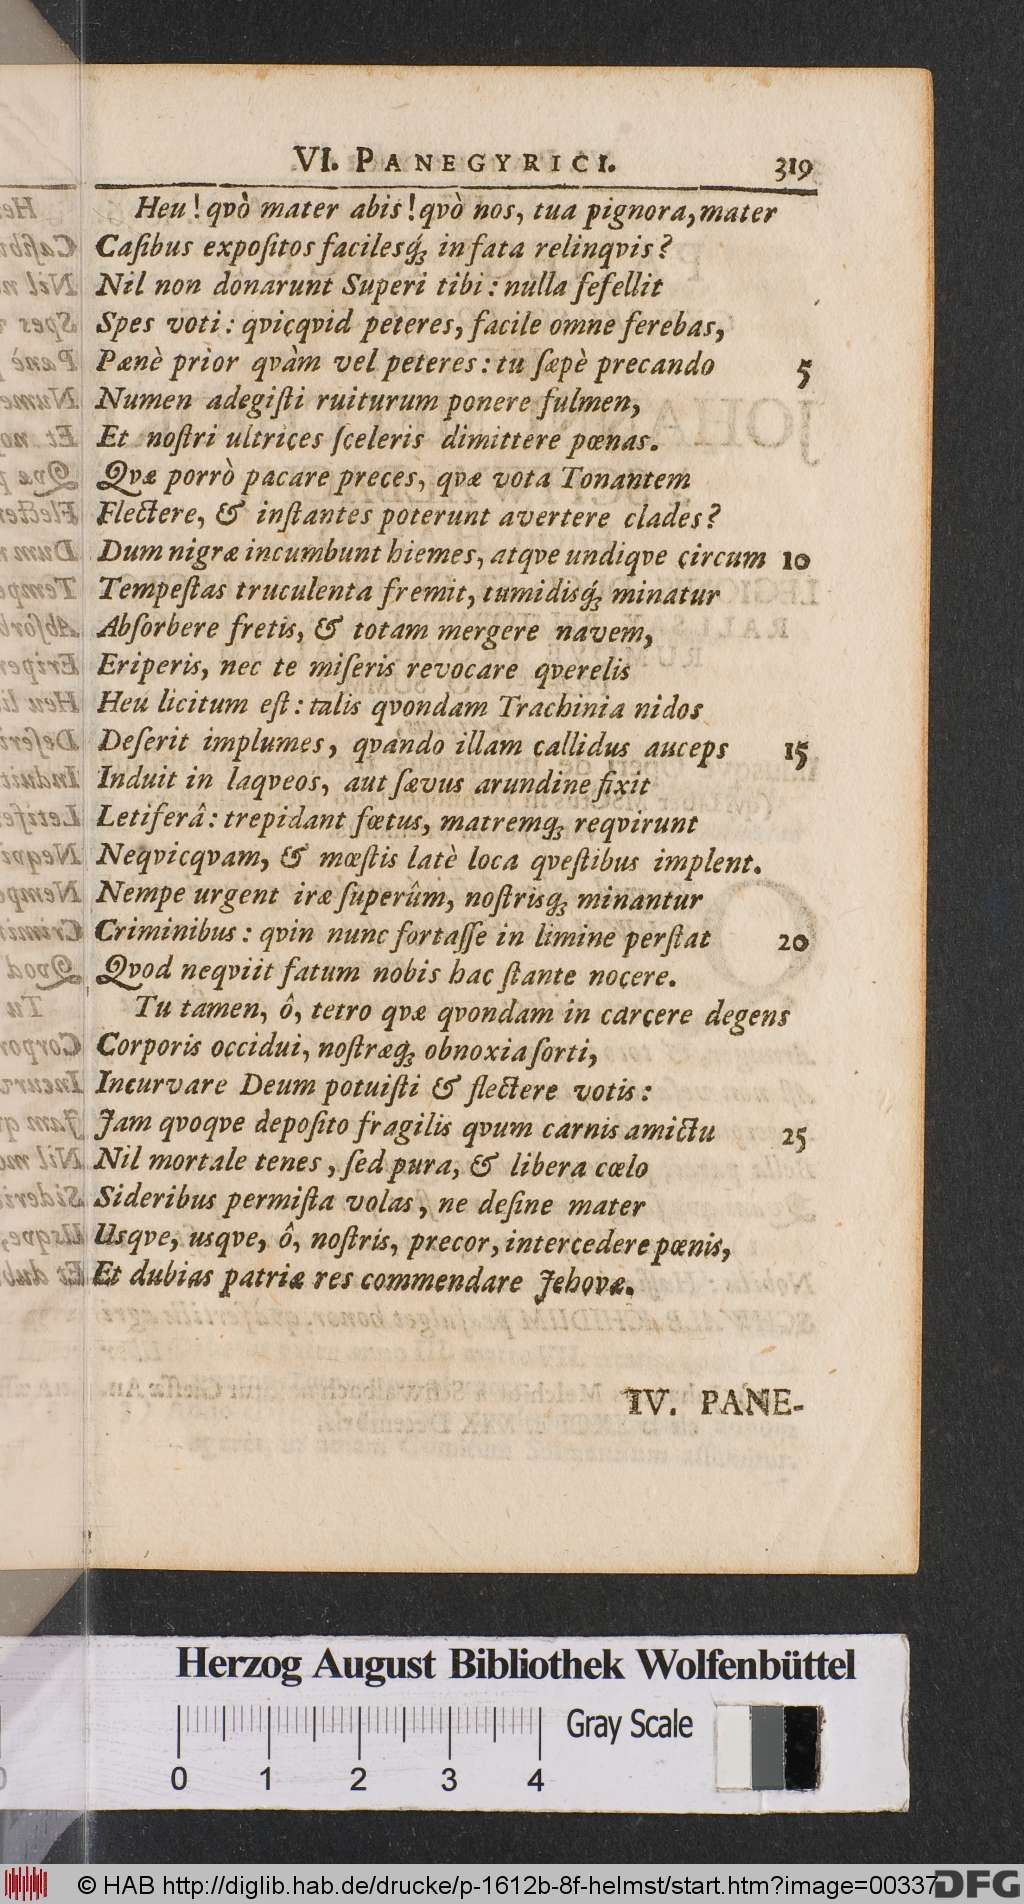 VI. PANEGYRICI. 319
Heu! qvò mater abis! qvò nos, tua pignora, mater
Caſibus expoſitos facilesq́ꝫ in fata relinqvis?
Nil non donarunt Superi tibi: nulla fefellit
Spes voti: qvicqvid peteres, facile omne ferebas,
Pænè prior qvàm vel peteres: tu ſæpè precando 5
Numen adegiſti ruiturum ponere fulmen,
Et noſtri ultrices ſceleris dimittere pœnas.
Qvæ porrò pacare preces, qvæ vota Tonantem
Flectere, & inſtantes poterunt avertere clades?
Dum nigræ incumbunt hiemes, atqve undiqve circum 10
Tempeſtas truculenta fremit, tumidisq́ꝫ minatur
Abſorbere fretis, & totam mergere navem,
Eriperis, nec te miſeris revocare qverelis
Heu licitum eſt: talis qvondam Trachinia nidos
Deſerit implumes, qvando illam callidus auceps 15
Induit in laqveos, aut ſævus arundine fixit
Letiferâ: trepidant fœtus, matremqꝫ reqvirunt
Neqvicqvam, & mœſtis latè loca qveſtibus implent.
Nempe urgent iræ ſuperûm, noſtrisqꝫ minantur
Criminibus: qvin nunc fortaſſe in limine perſtat 20
Qvod neqviit fatum nobis hac ſtante nocere.
Tu tamen, ô, tetro qvæ qvondam in carcere degens
Corporis occidui, noſtræqꝫ obnoxia ſorti,
Incurvare Deum potuiſti & flectere votis:
Jam qvoqve depoſito fragilis qvum carnis amictu 25
Nil mortale tenes, ſed pura, & libera cœlo
Sideribus permiſta volas, ne deſine mater
Usqve, usqve, ô, noſtris, precor, intercedere pœnis,
Et dubias patriæ res commendare Jehovæ.
IV. PANE-
Herzog August Bibliothek Wolfenbüttel
Gray Scale
0 1 2 3 4
© HAB http://diglib.hab.de/drucke/p-1612b-8f-helmst/start.htm?image=00337
DFG